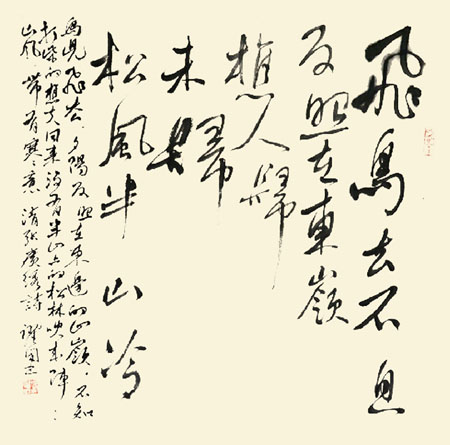 飛鳥去不息
反照在東嶺
樵人歸
未歸
松風半山冷
鳥兒飛去，夕陽反照在東邊的山嶺，不知
打柴的樵夫回來沒有半山上的松林吹來陣：
山風，帶有寒意 清張廣 詩